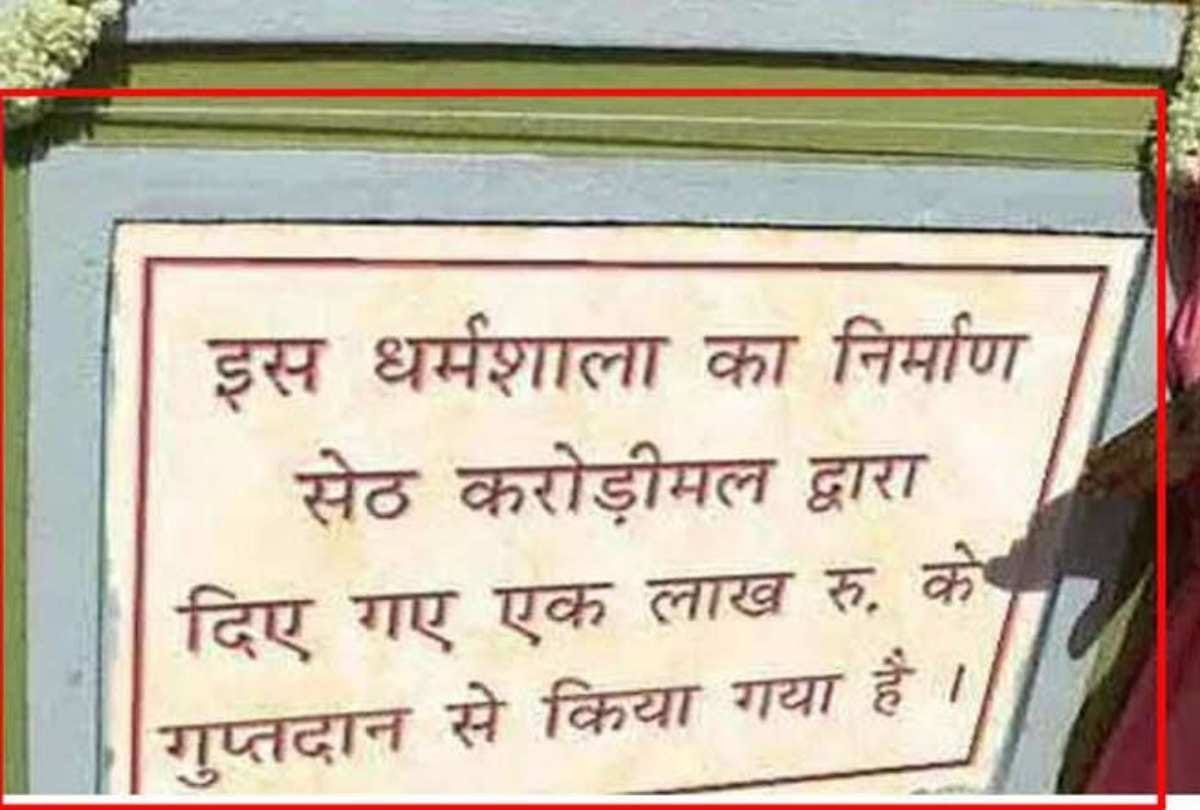 इस धर्मशाला का निर्माण
सेठ करोड़ीमल द्वारा
दिए गए एक लाख रु. के
गुप्तदान से किया गया है ।